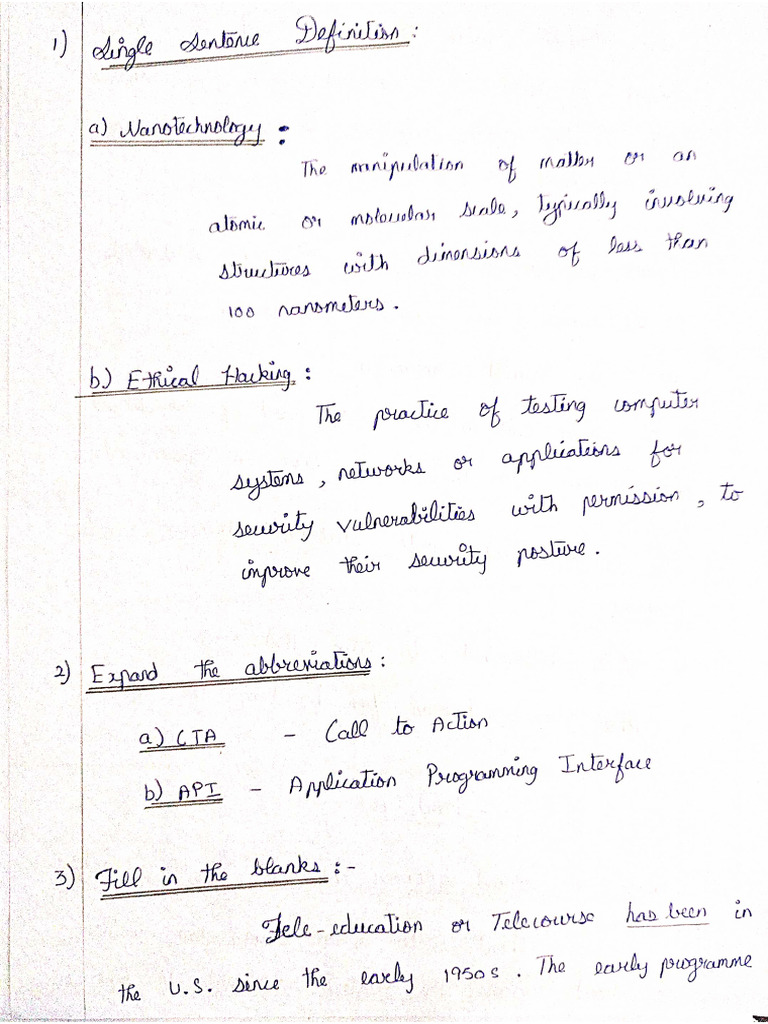 1) Single Sentence Definition :
a) Nanotechnology :
The manipulation of matter or an
atomic or molecular scale, typically involving
structures with dimensions of less than
100 nanometers.
b) Ethical Hacking :
The practice of testing computer
systems, networks or applications for
security vulnerabilities with permission, to
improve their security posture.
2) Expand the abbreviations :
a) CTA - Call to Action
b) API - Application Programming Interface
3) Fill in the blanks :-
Tele-education or Telecourse has been in
the U.S. since the early 1950s. The early programme